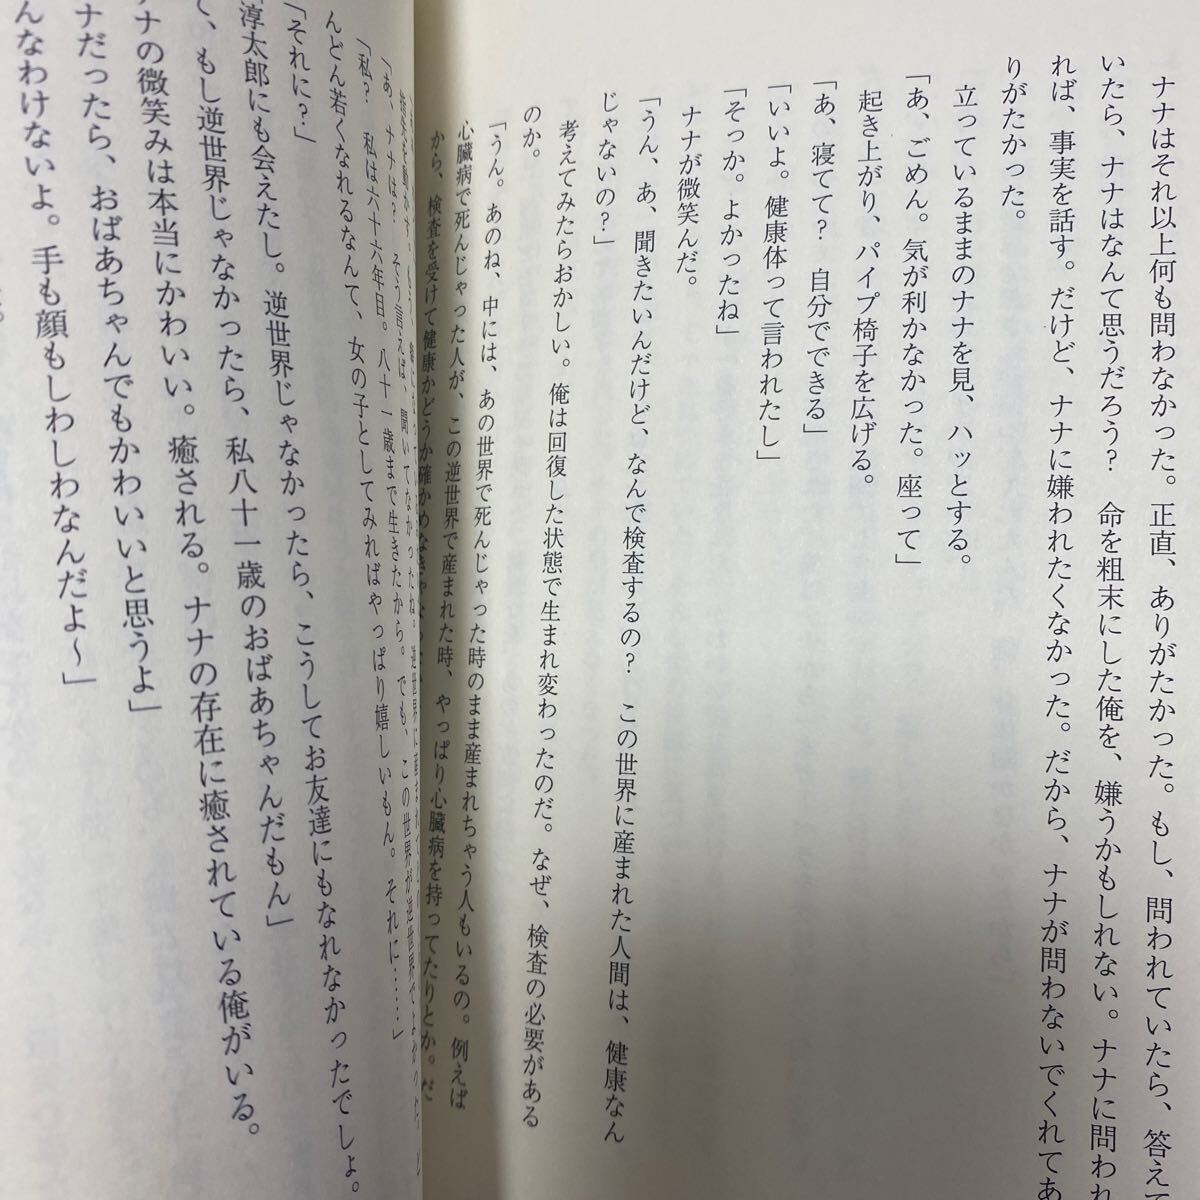 ナナはそれ以上何も問わなかった。正直、ありがたかった。もし、問われていたら、答えて
いたら、ナナはなんて思うだろう？　命を粗末にした俺を、嫌うかもしれない。ナナに問われ
れば、事実を話す。だけど、ナナに嫌われたくなかった。だから、ナナが問わないでくれてあ
りがたかった。
立っているままのナナを見、ハッとする。
「あ、ごめん。気が利かなかった。座って」
起き上がり、パイプ椅子を広げる。
「あ、寝てて？　自分でできる」
「いいよ。健康体って言われたし」
「そっか。よかったね」
ナナが微笑んだ。
「うん、あ、聞きたいんだけど、なんで検査するの？　この世界に産まれた人間は、健康なん
じゃないの？」
考えてみたらおかしい。俺は回復した状態で生まれ変わったのだ。なぜ、検査の必要がある
のか。
「うん。あのね、中には、あの世界で死んじゃった時のまま産まれちゃう人もいるの。例えば
心臓病で死んじゃった人が、この逆世界で産まれた時、やっぱり心臓病を持ってたりとか。だ
から、検査を受けて健康かどうか確かめなきゃ
「あ、ナナは？　そう言えば、聞いてなかったね。逆世界に産まれて
「私？　私は六十六年目。八十一歳まで生きたから。でも、この世界が逆世界でよかった
んどん若くなれるなんて、女の子としてみればやっぱり嬉しいもん。それに……」
「それに？」
淳太郎にも会えたし。逆世界じゃなかったら、こうしてお友達にもなれなかったでしょ。
て、もし逆世界じゃなかったら、私八十一歳のおばあちゃんだもん」
ナの微笑みは本当にかわいい。癒される。ナナの存在に癒されている俺がいる。
ナだったら、おばあちゃんでもかわいいと思うよ」
んなわけないよ。手も顔もしわしわなんだよ〜」